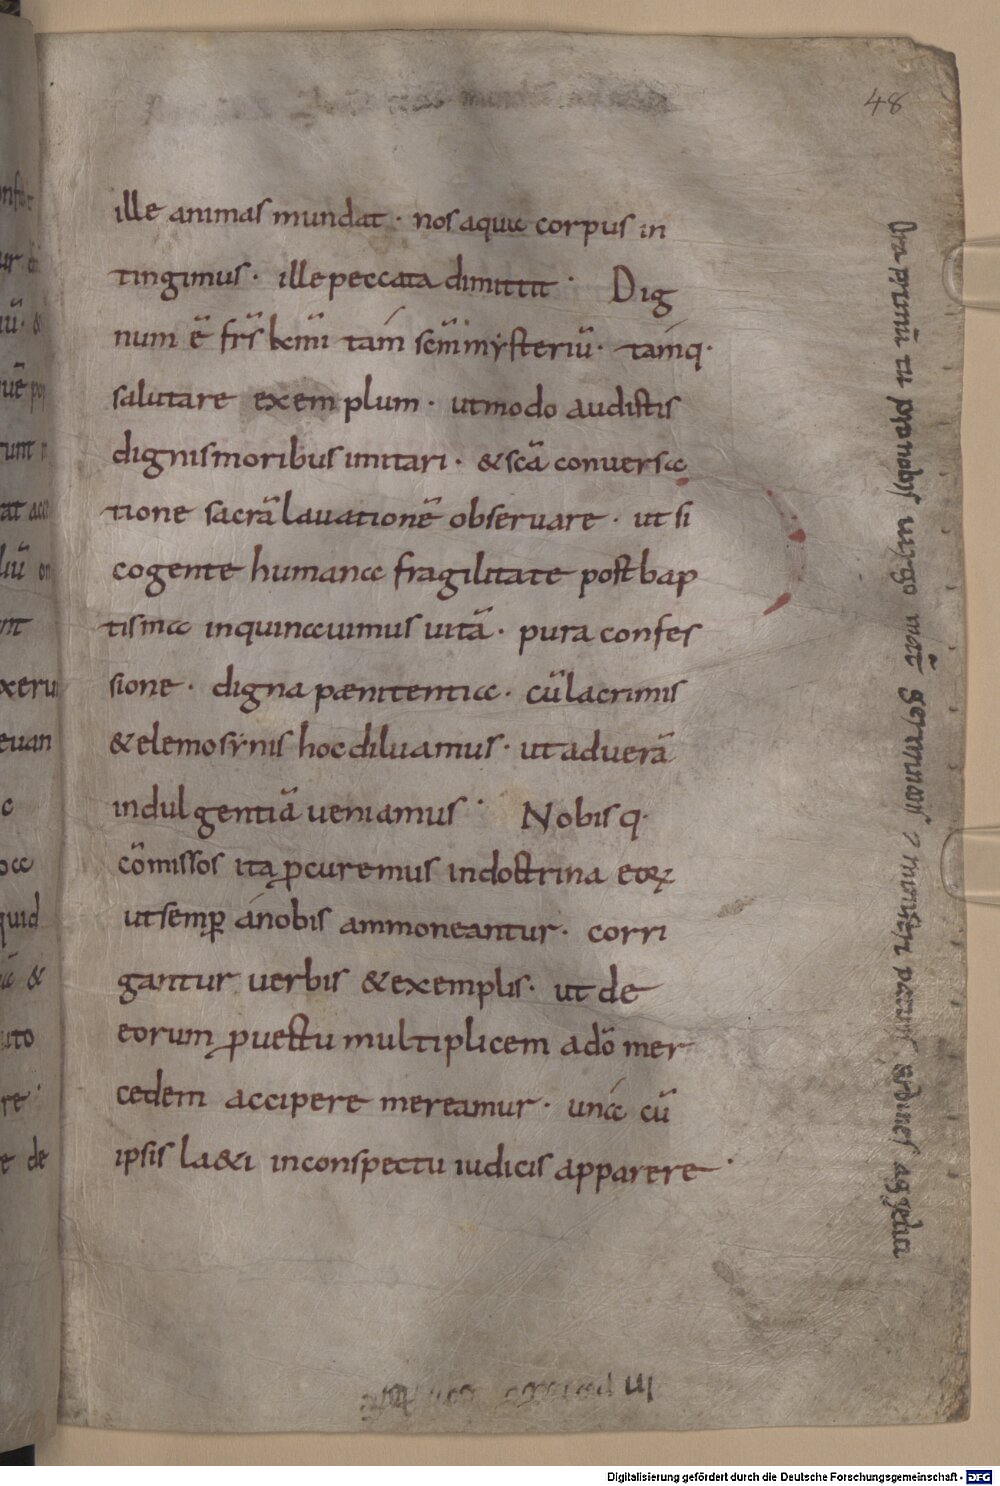 48
ille animas mundat · nos aqua corpus in
tingimus · ille peccata dimittit · Dig
num ē fr̄s k̄mi tám sc̄m mẏsteriū · támq·
salutare exemplum · ut modo audistis
dignis moribus imitari · & scā conversa
tione sacrā lavationē observare · ut si
cogente humana fragilitate post bap
tisma inquinavimus vitā · pura confes
sione · digna pænitentia · cū lacrimis
& elemosẏnis hoc diluamus · ut ad verā
indulgentiā veniamus · Nobis q·
cōmissos ita ꝓcuremus in doctrina eoꝝ
ut semꝑ á nobis ammoneantur · corri
gantur verbis & exemplis · ut de
eorum ꝓvectu multiplicem a dō mer
cedem accipere mereamur · uná cū
ipsis l&i in conspectu iudicis apparere ·
Digitalisierung gefördert durch die Deutsche Forschungsgemeinschaft - DFG